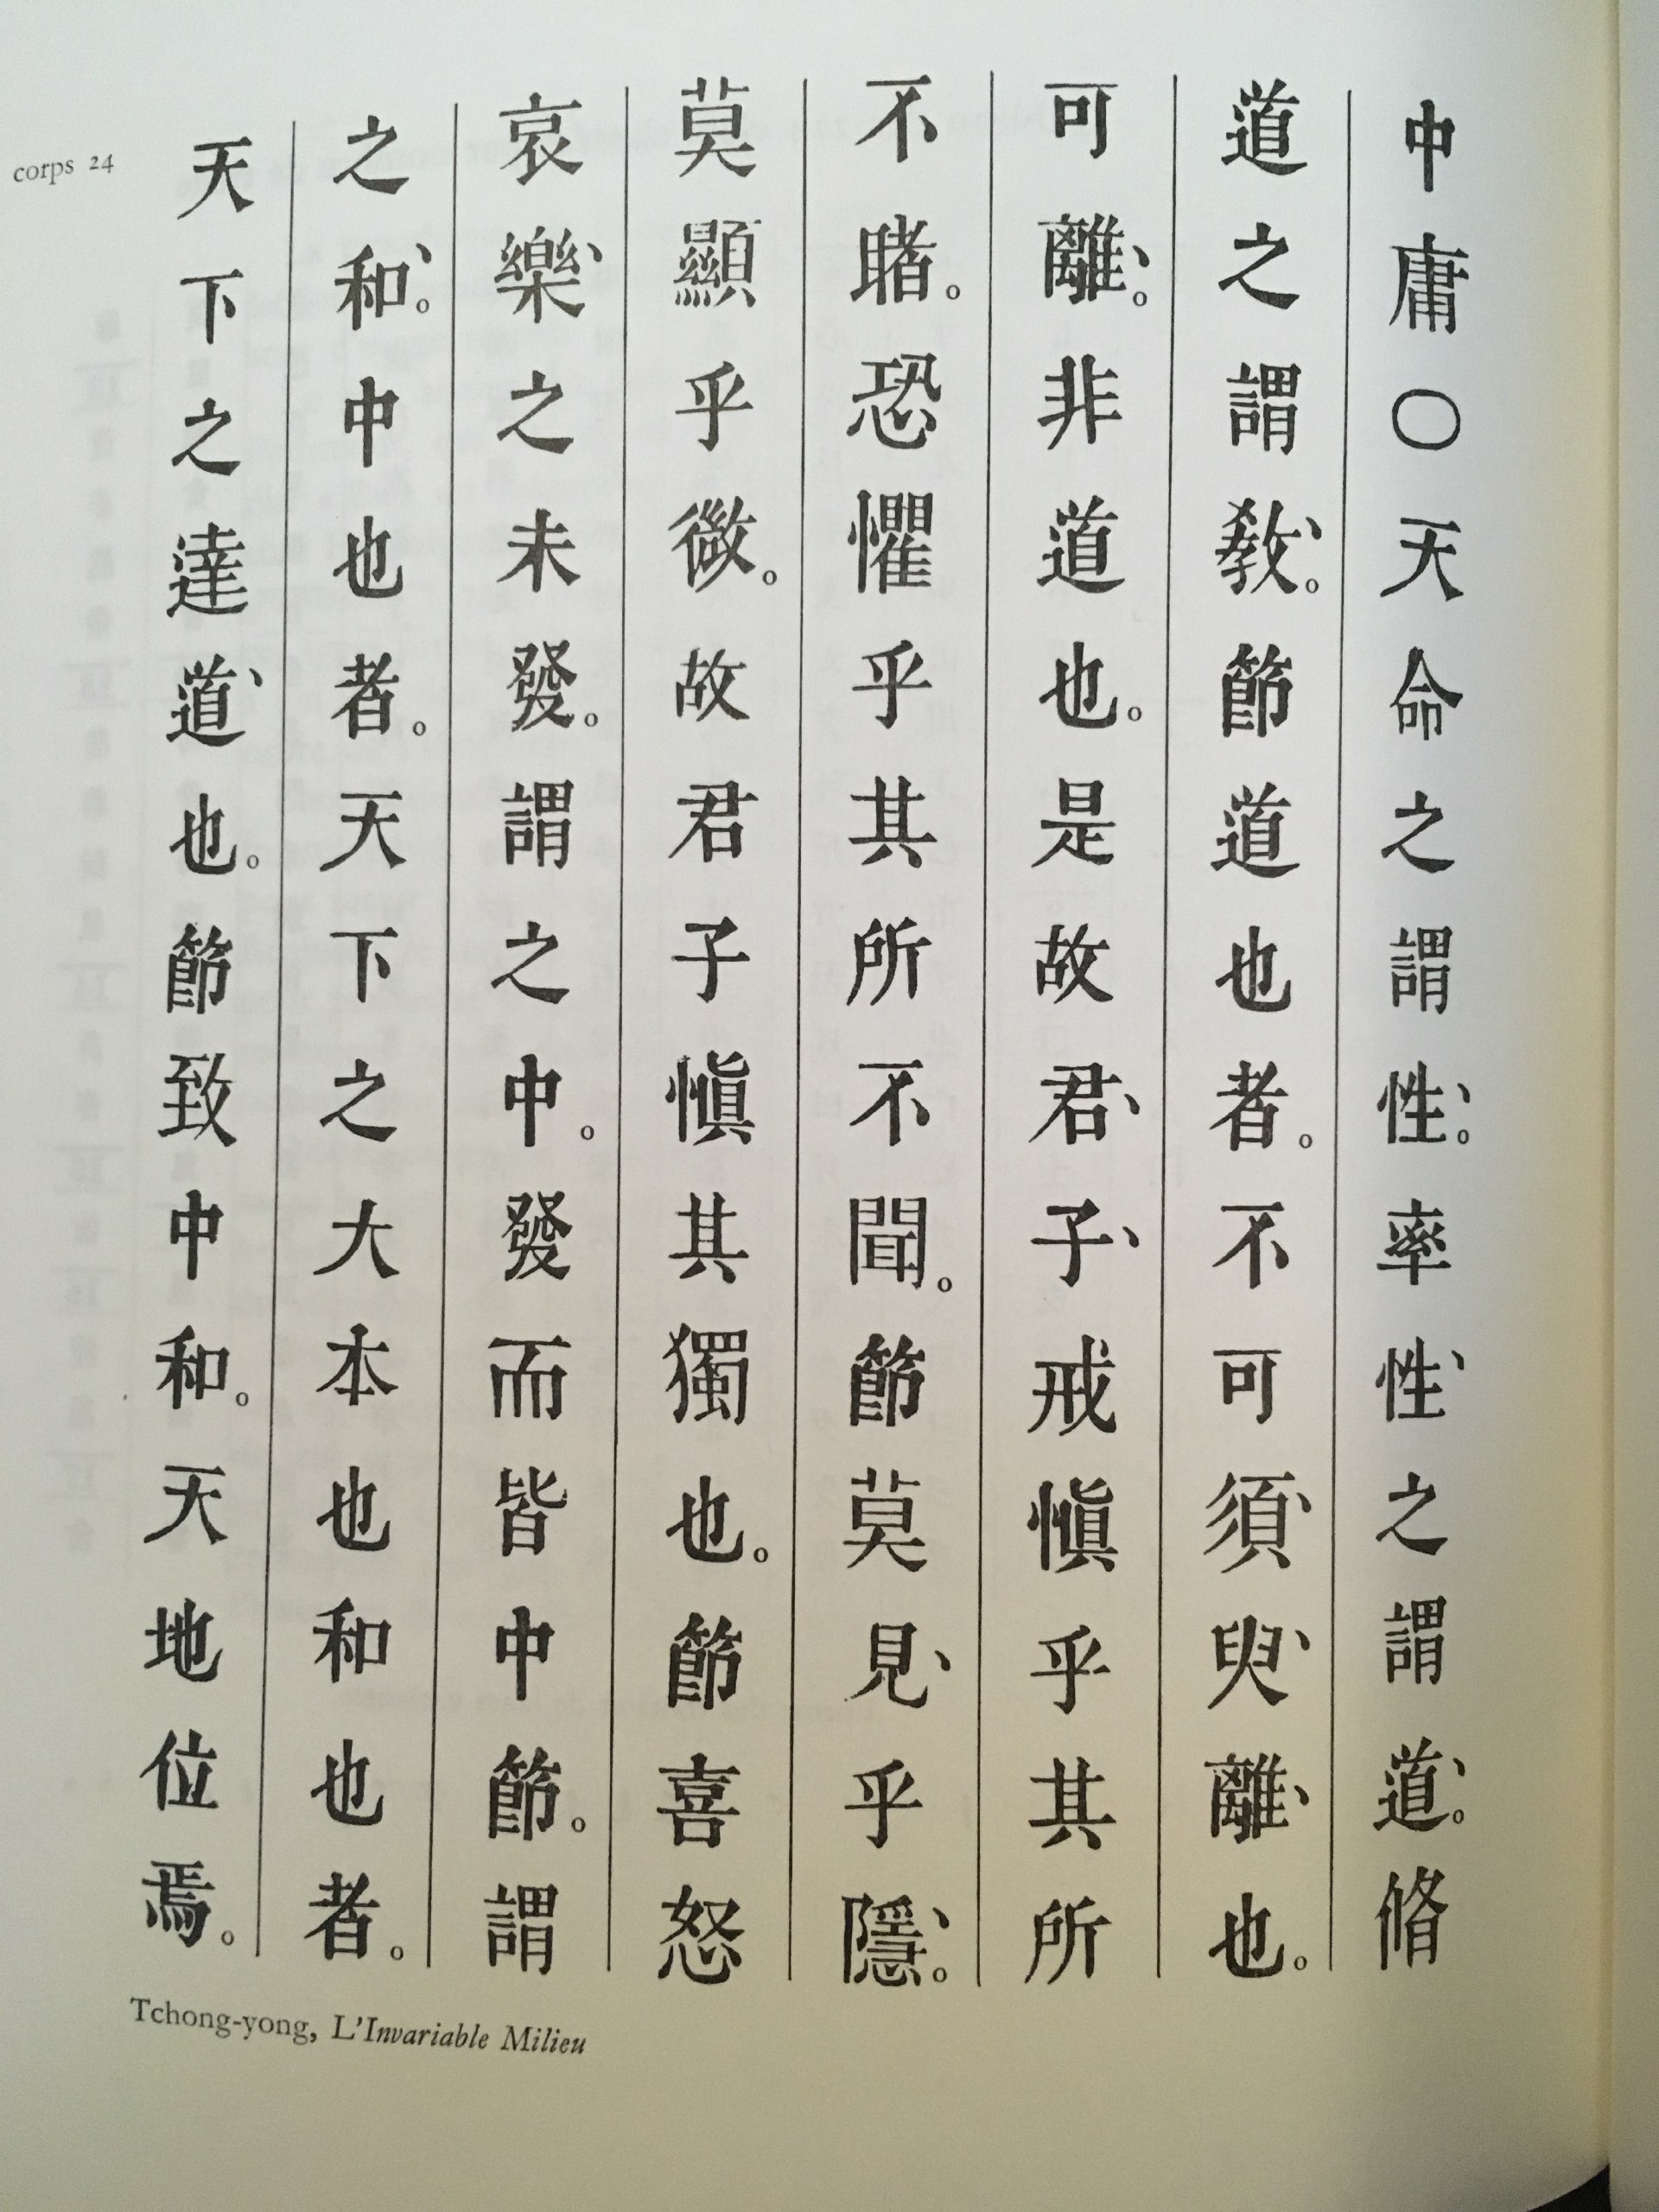 中庸〇天命之謂性、。率性、之謂道、。脩
道之謂敎、。節道也者。不可須、臾、離、也。
可離、。非道也。是故君、子、戒愼乎其所
不睹。恐懼乎其所不聞。節莫見、乎隱、。
莫顯乎微。故君子愼其獨也。節喜怒
哀樂、之未發。謂之中。發而皆中節。謂
之和、。中也者。天下之大本也和也者。
天下之達道、也。節致中和。天地位焉。
corps 24
Tchong-yong, L'Invariable Milieu